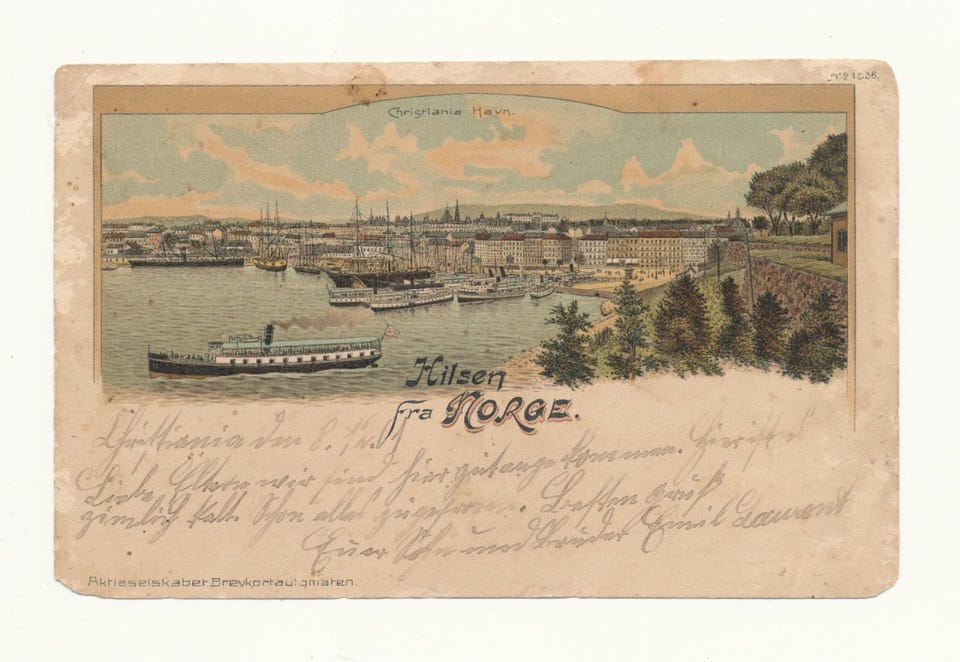 No 1236.
Christiania Havn.
Hilsen
fra NORGE.
Christiania den 8. 12.
Liebe Eltern wir sind hier gut angekommen. Hier ist s
zimlich kalt. Schon alles zugefroren. Besten Gruß
Euer Sohn und Bruder Emil Laurent
Aktieselskabet Brevkortautomaten.